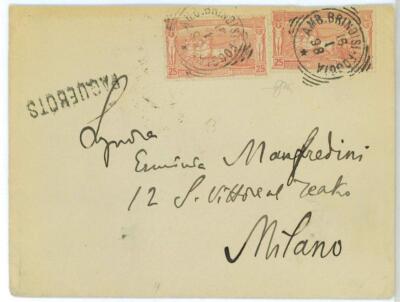 AMB. BRINDISI-FOGGIA
AMB. BRINDISI-FOGGIA
16
1
98
25 25
25
PAQUEBOTS
Signora
Erminia Manfredini
12 S. Vittore al Teatro
Milano